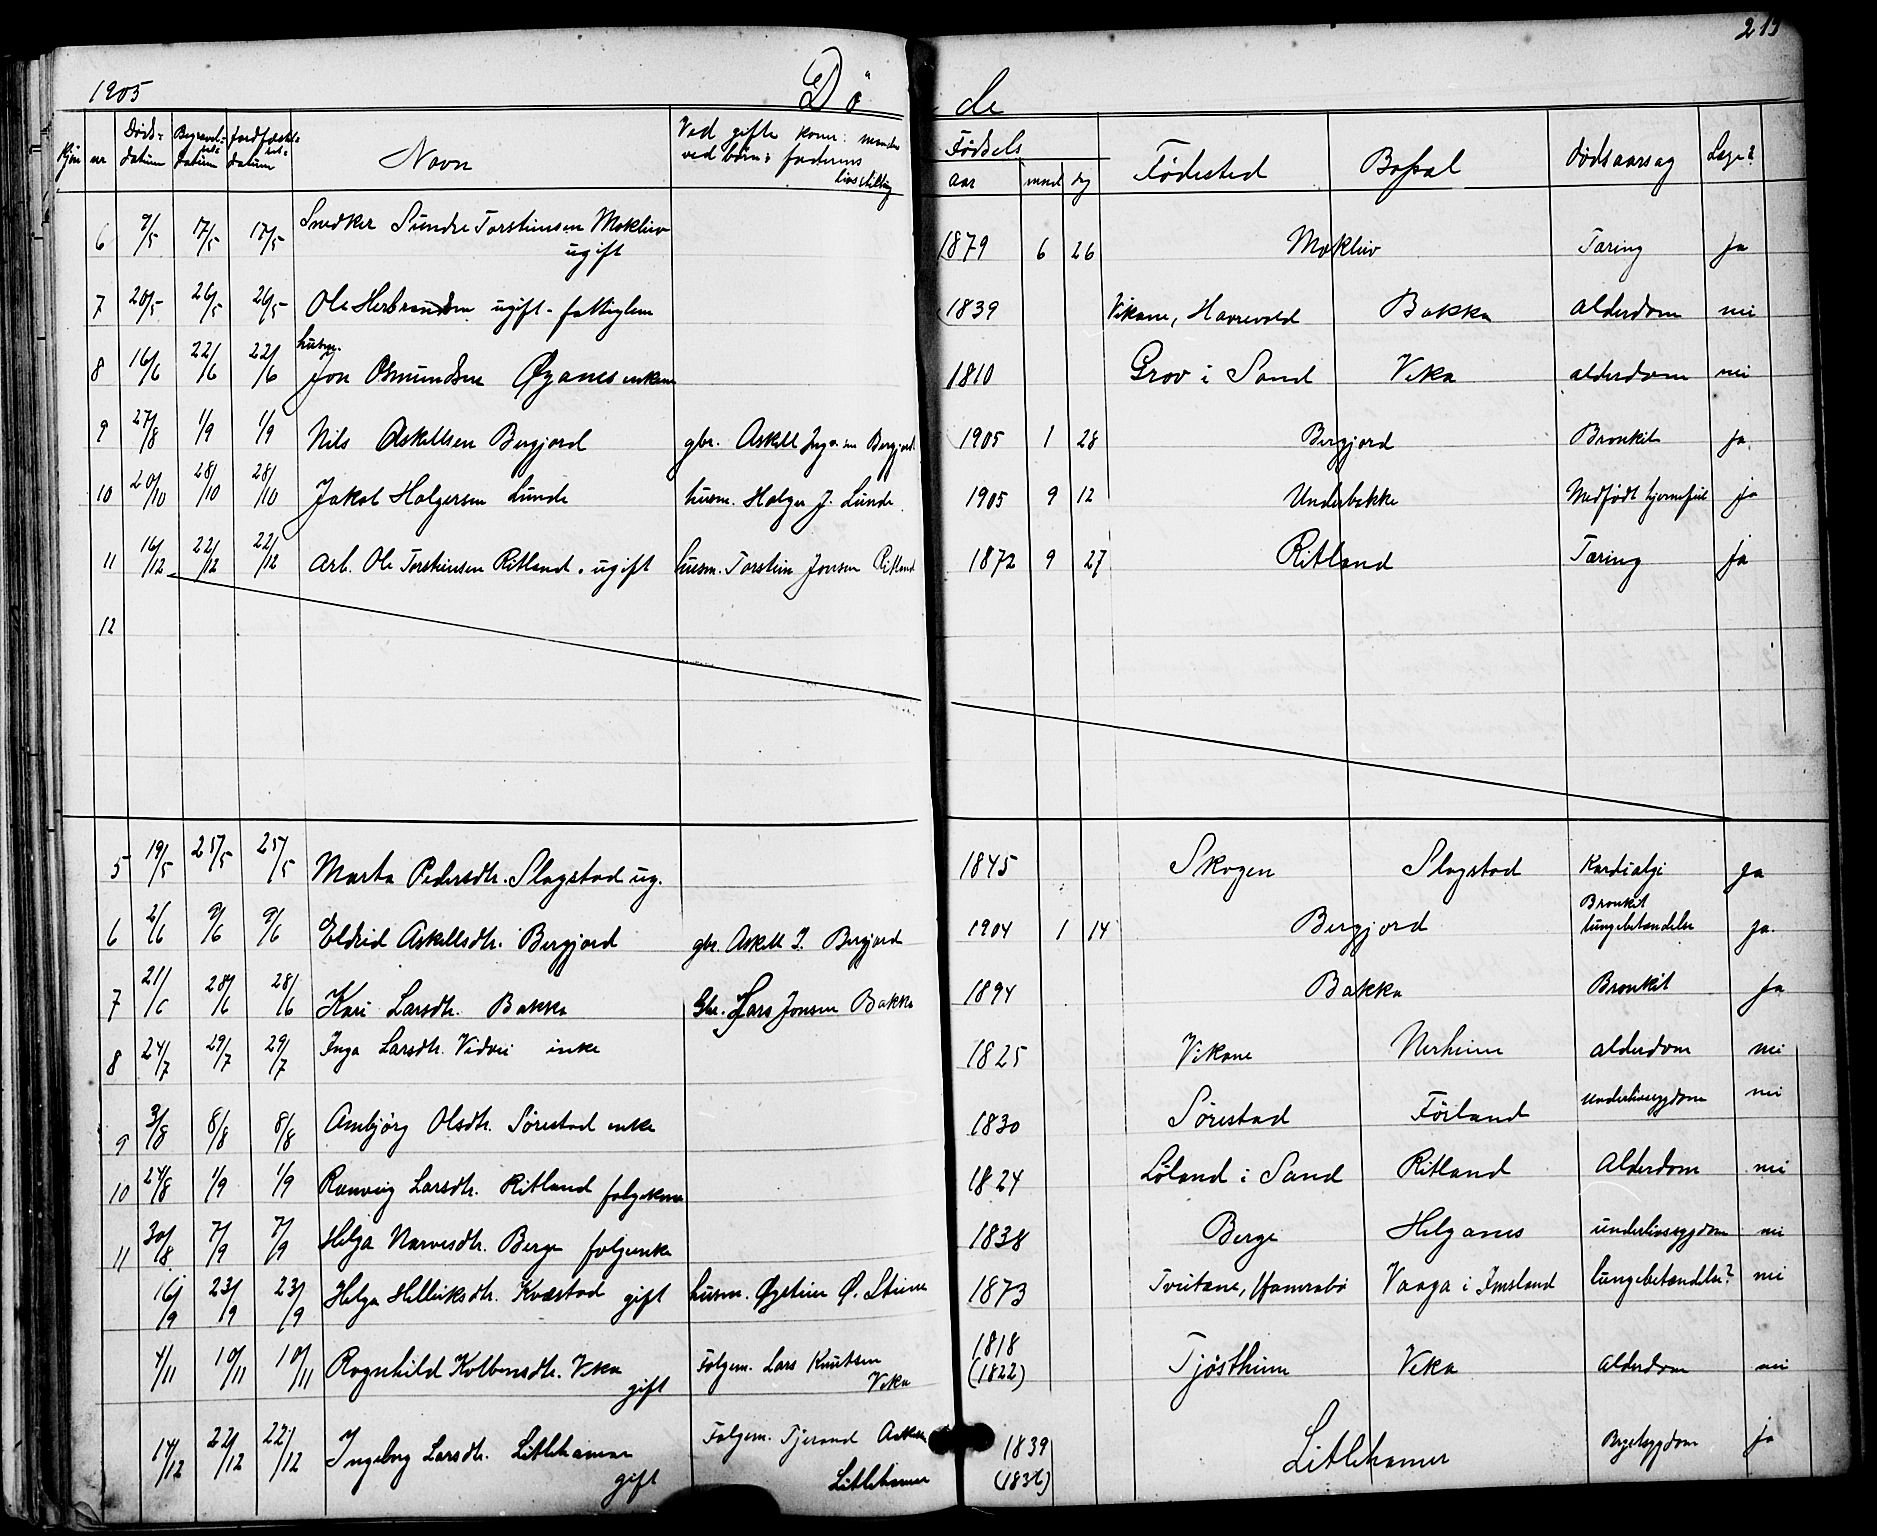 219
1905 Dø de
Kjøn nr Døds-datum Begravelses-datum Jordfæstelses-datum Navn Ved gifte koner: mandens ved børn: faderens livsstilling Fødsels aar mnd dg Fødested Bopæl Dødsaarsag Læge?
6 9/5 17/5 17/5 Snedker Sundre Torsteinsen Mokleiv ugift 1879 6 26 Mokleiv Tæring ja
7 20/5 26/5 26/5 Ole Herbrandsen ugift - fattiglem 1839 Vikane, Hovrevold Bakka alderdom nei
8 16/6 22/6 22/6 husm. Jon Osmundsen Øyanes enkem 1810 Grov i Sand Veka alderdom nei
9 27/8 1/9 1/9 Nils Askellsen Bergjord gbr. Askell Bergjord 1905 1 28 Bergjord Bronkit ja
10 20/10 28/10 28/10 Jakob Holgersen Lunde husm. Holger J. Lunde 1905 9 12 Underbakke Medfødt hjernefeil ja
11 16/12 22/12 22/12 Arb. Ole Torsteinsen Ritland. ugift husm. Torstein Jonsen Ritland 1872 9 27 Ritland Tæring ja
12
5 19/5 25/5 25/5 Marta Pedersdtr. Slogstad ug. 1845 Skogen Slogstad Kardialgi ja
6 2/6 9/6 9/6 Eldrid Askellsdtr. Bergjord gbr. Askell I. Bergjord 1904 1 14 Bergjord Bronkit lungebetændelse ja
7 21/6 28/6 28/6 Kari Larsdtr. Bakka Gbr. Lars Jonsen Bakka 1894 Bakka Bronkit ja
8 24/7 29/7 29/7 Inga Larsdtr. Vidvei enke 1825 Vikane Nerheim alderdom nei
9 3/8 8/8 8/8 Ambjørg Olsdtr. Sørestad enke 1830 Sørestad Førland underlivssygdom nei
10 24/8 1/9 1/9 Ranveig Larsdtr. Ritland folgekone 1824 Løland i Sand Ritland Alderdom nei
11 30/8 7/9 7/9 Helga Narvesdtr. Berge folgeenke 1838 Berge Helganes underlivssygdom nei
16/9 23/9 23/9 Helga Helleiksdtr. Kvæstad gift husm. Øystein Ø. Steine 1873 Tveitane, Hamrabø Vaaga i Imsland lungebetændelse? nei
4/11 10/11 10/11 Ragnhild Kolbensdtr. Veka gift Folgem. Lars Knutsen Veka 1818 (1822) Tjøstheim Veka Alderdom nei
14/12 22/12 22/12 Ingeborg Larsdtr. Litlehamar gift Folgem. Tjerand Litlehamar 1839 (1836) Litlehamar Brystsygdom ja